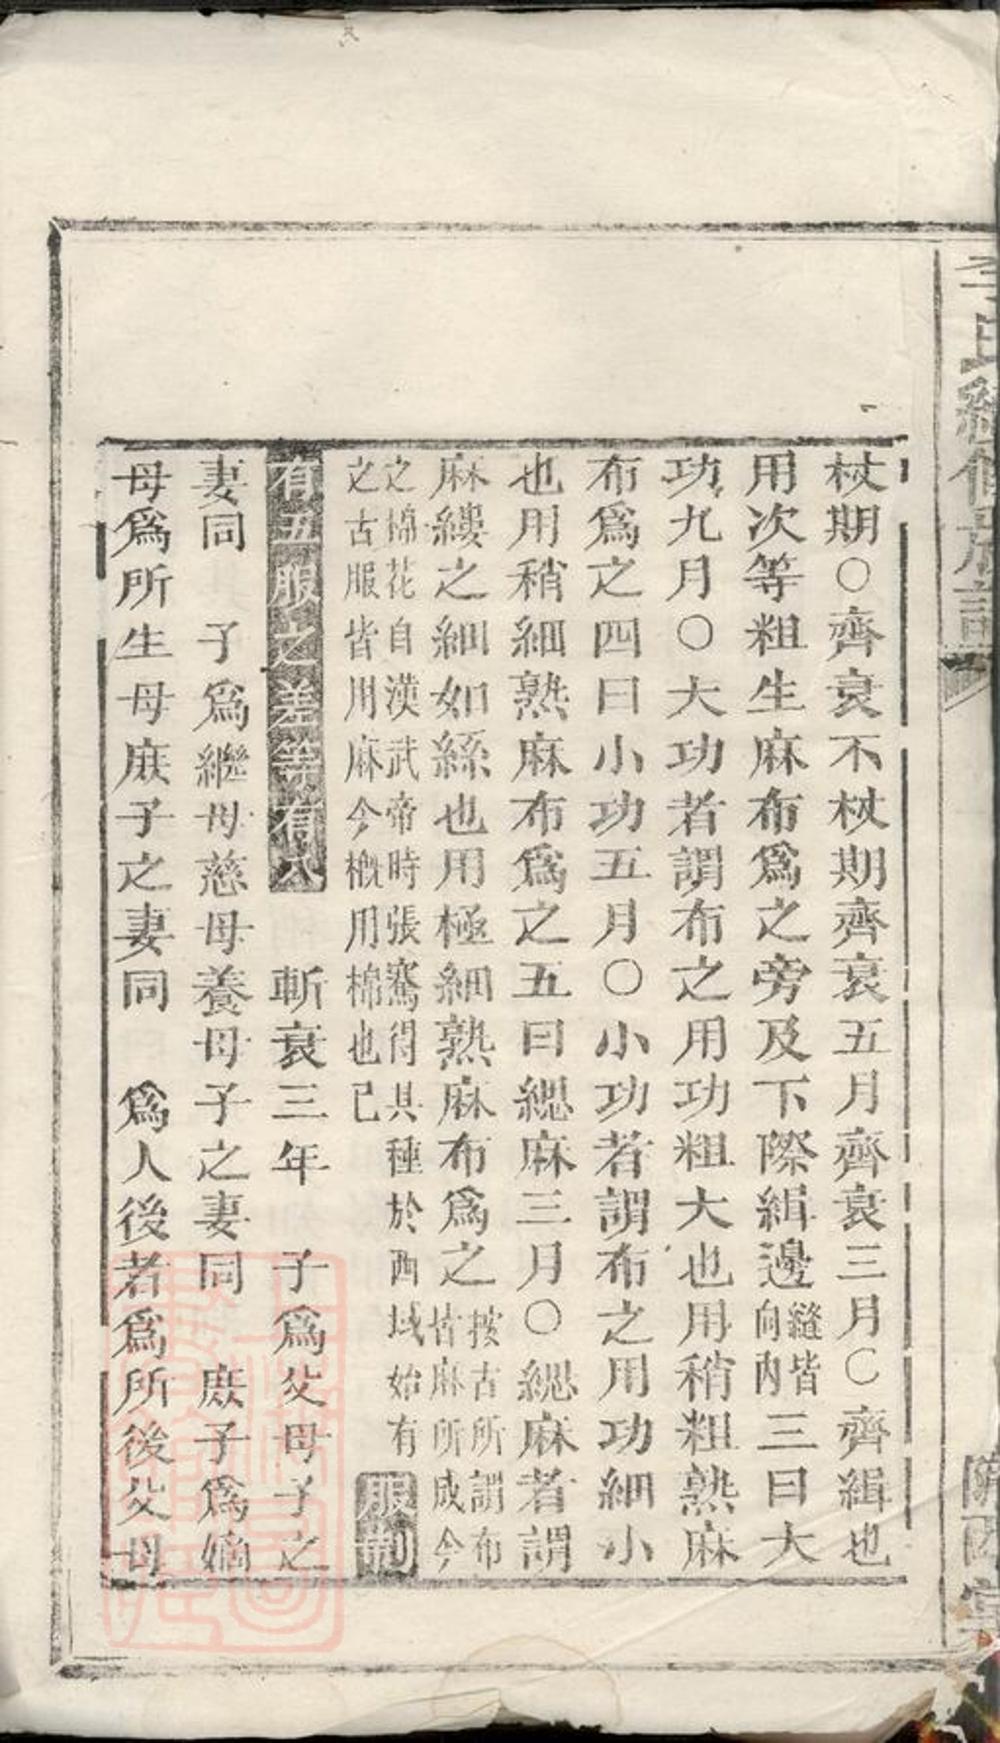 李氏續修族譜
隴西堂
杖期○齊衰不杖期齊衰五月齊衰三月○齊緝也
用次等粗生麻布爲之旁及下際緝邊縫皆向內三曰大
功九月○大功者謂布之用功粗大也用稍粗熟麻
布爲之四曰小功五月○小功者謂布之用功細小
也用稍細熟麻布爲之五曰緦麻三月○緦麻者謂
麻縷之細如絲也用極細熟麻布爲之按古所謂布皆麻所成今
之棉花自漢武帝時張騫得其種於西域始有
之古服皆用麻今概用棉也已
服制
有五服之差等有八 斬衰三年 子爲父母子之
妻同 子爲繼母慈母養母子之妻同 庶子爲嫡
母爲所生母庶子之妻同 爲人後者爲所後父母